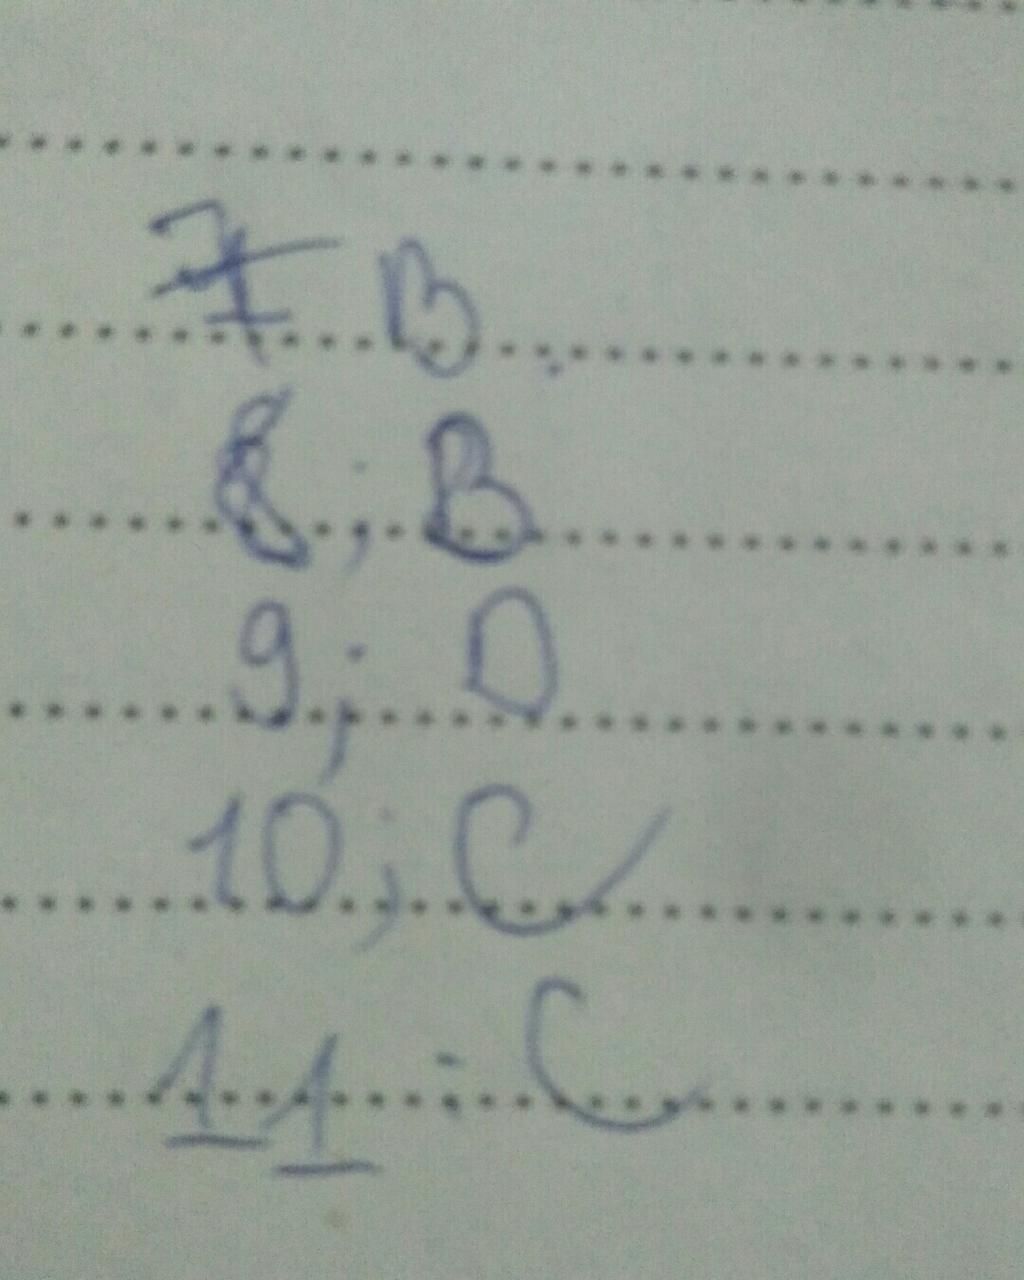 7 B.
8; B
9; D
10; C
11: C